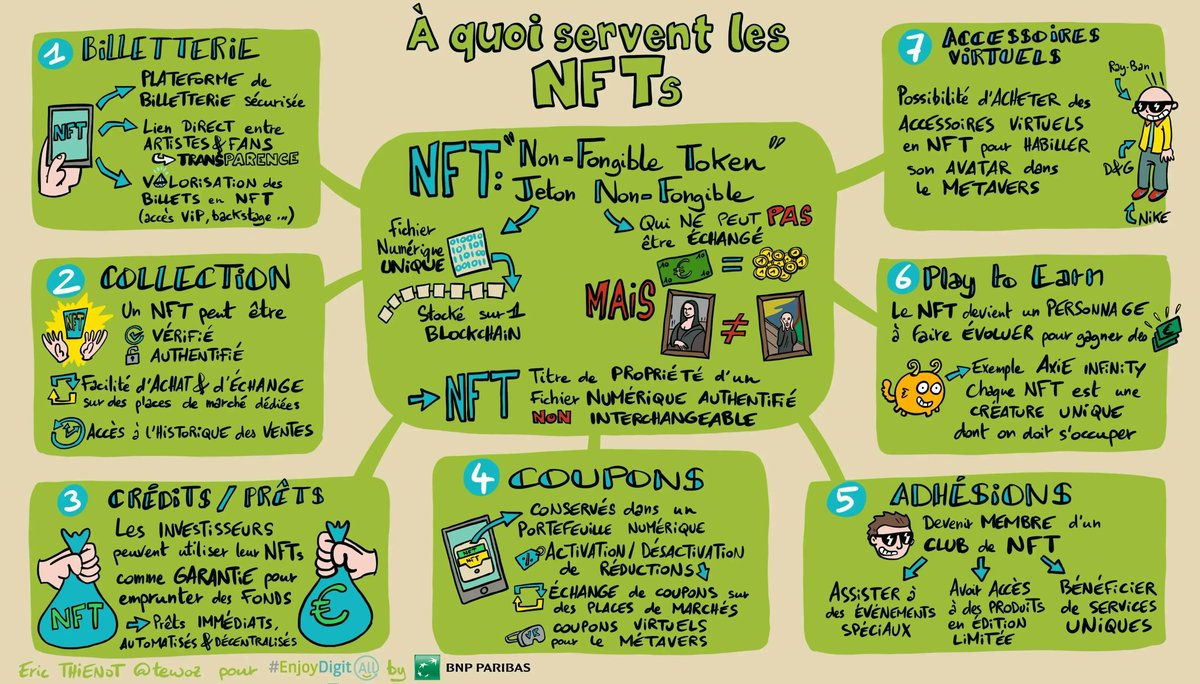 À quoi servent les
NFTs
NFT: "Non-Fongible Token"
Jeton Non-Fongible
Fichier
Numérique
UNIQUE
010010
101101
010110
001011
Stocké sur 1
BLOCKCHAIN
Qui NE PEUT PAS
être ÉCHANGÉ
10
€
10
=
MAIS
≠
NFT
Titre de PROPRIÉTÉ d'un
Fichier NUMÉRIQUE AUTHENTIFIÉ
NON INTERCHANGEABLE
1 BILLETTERIE
NFT
PLATEFORME de
BILLETTERIE SÉCURISÉE
Lien DIRECT entre
ARTISTES & FANS
TRANSPARENCE
VALORISATION des
BILLETS en NFT
(accès VIP, backstage...)
2 COLLECTION
NFT
Un NFT peut être
VÉRIFIÉ
AUTHENTIFIÉ
Facilité d'ACHAT & d'ÉCHANGE
sur des places de marché dédiées
Accès à l'HISTORIQUE des VENTES
3 CRÉDITS / PRÊTS
Les INVESTISSEURS
peuvent utiliser leur NFTs
comme GARANTIE pour
emprunter des FONDS
Prêts IMMÉDIATS,
AUTOMATISÉS & DÉCENTRALISÉS
NFT
€
4 COUPONS
NFT
CONSERVÉS dans un
PORTEFEUILLE NUMÉRIQUE
%
ACTIVATION / DÉSACTIVATION
de RÉDUCTIONS
ÉCHANGE de coupons sur
des PLACES de MARCHÉS
VR
COUPONS VIRTUELS
pour le MÉTAVERS
5 ADHÉSIONS
Devenir MEMBRE d'un
CLUB de NFT
ASSISTER à
des ÉVÉNEMENTS
SPÉCIAUX
Avoir ACCÈS
à des PRODUITS
en ÉDITION
LIMITÉE
BÉNÉFICIER
de SERVICES
UNIQUES
6 Play to Earn
Le NFT devient un PERSONNAGE
à faire ÉVOLUER pour gagner des
€
Exemple AXIE INFINITY
Chaque NFT est une
CRÉATURE UNIQUE
dont on doit s'occuper
7 ACCESSOIRES
VIRTUELS
Possibilité d'ACHETER des
ACCESSOIRES VIRTUELS
en NFT pour HABILLER
son AVATAR dans
le METAVERS
Ray-Ban
D&G
NIKE
Eric THIENOT @tewoz pour #EnjoyDigitAll by BNP PARIBAS